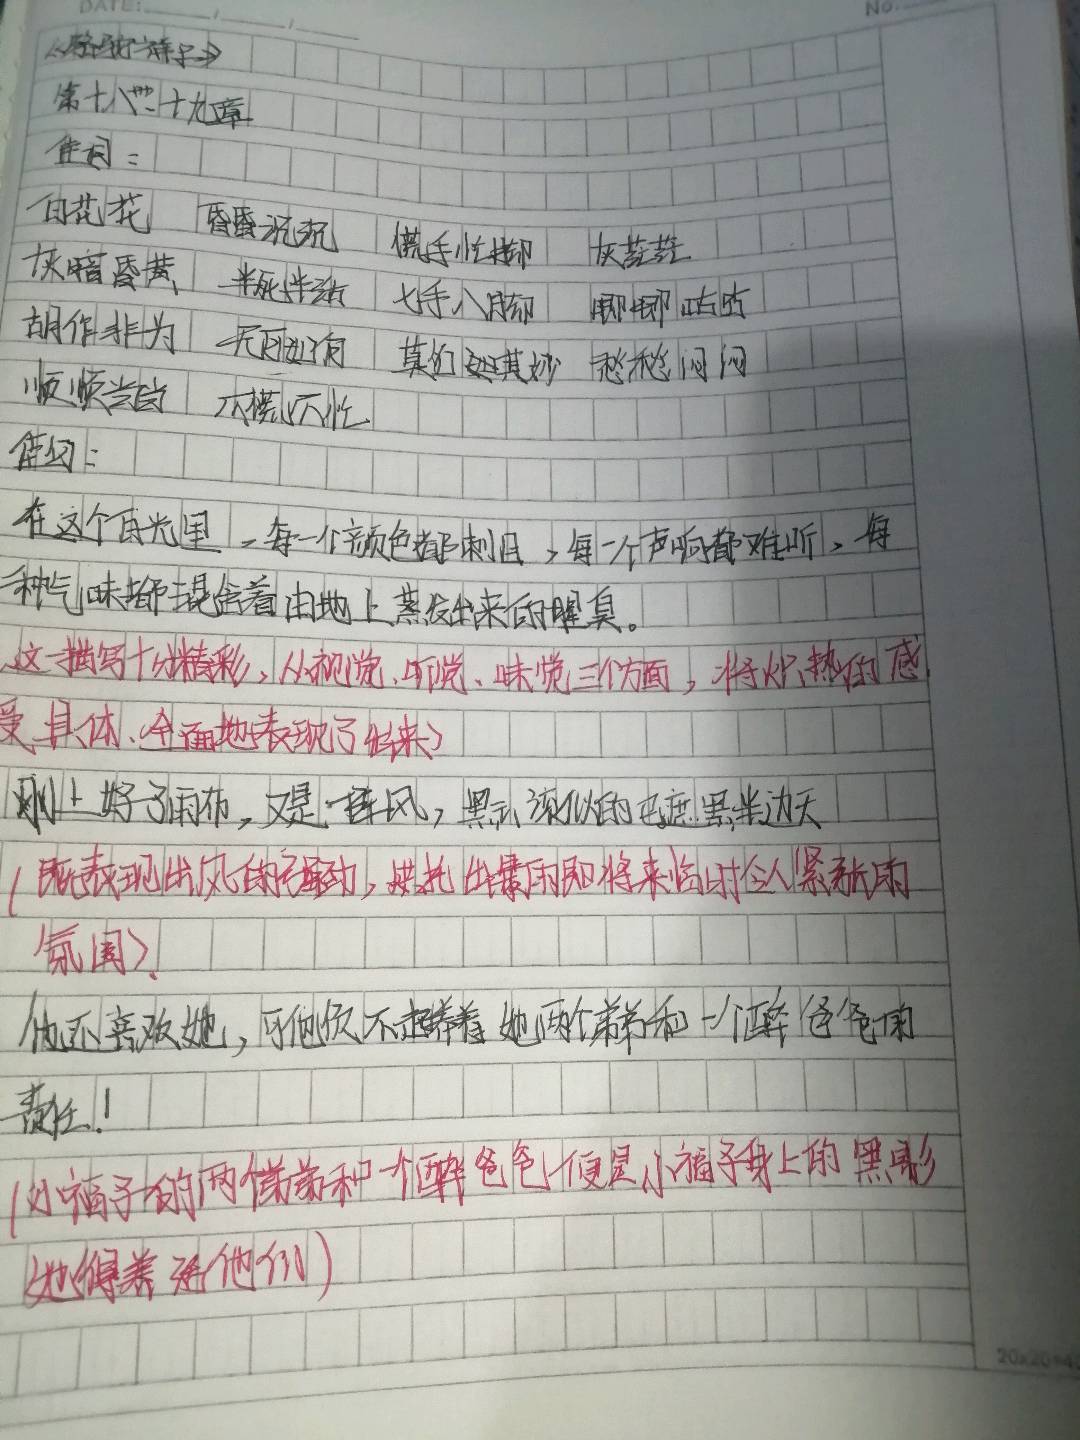 DATE: / /
No.
《骆驼祥子》
第十八世二十九章
佳词：
白花花 昏昏沉沉 慌手忙脚 灰茫茫
灰暗昏黄 半死半活 七手八脚 嘟嘟咕咕
胡作非为 无可如何 莫名其妙 愁愁闷闷
顺顺当当 不慌不忙
佳句：
在这个白光里，每一个颜色都刺目，每一个声响都难听，每
一种气味都混含着由地上蒸发出来的腥臭。
（这一描写十分精彩，从视觉、听觉、味觉三个方面，将炎热的感
受具体、全面地表现了出来）
刚上好了雨布，又是一阵风，黑云滚似的已遮黑半边天
（既表现出风的，烘托出暴雨即将来临时令人紧张的
氛围）
他还喜欢她，可他负不起养着她两个弟弟和一个醉爸爸的
责任！
（小福子的两个弟弟和一个醉爸爸便是小福子身上的黑影
她得养活他们）
20x20=4